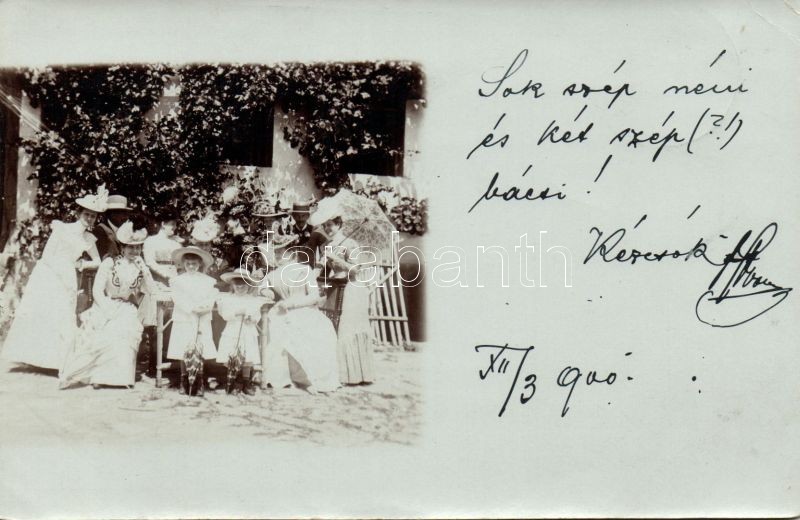 Sok szép néni
és két szép (?!)
bácsi!
Kézcsók
XII/3 900.
darabanth